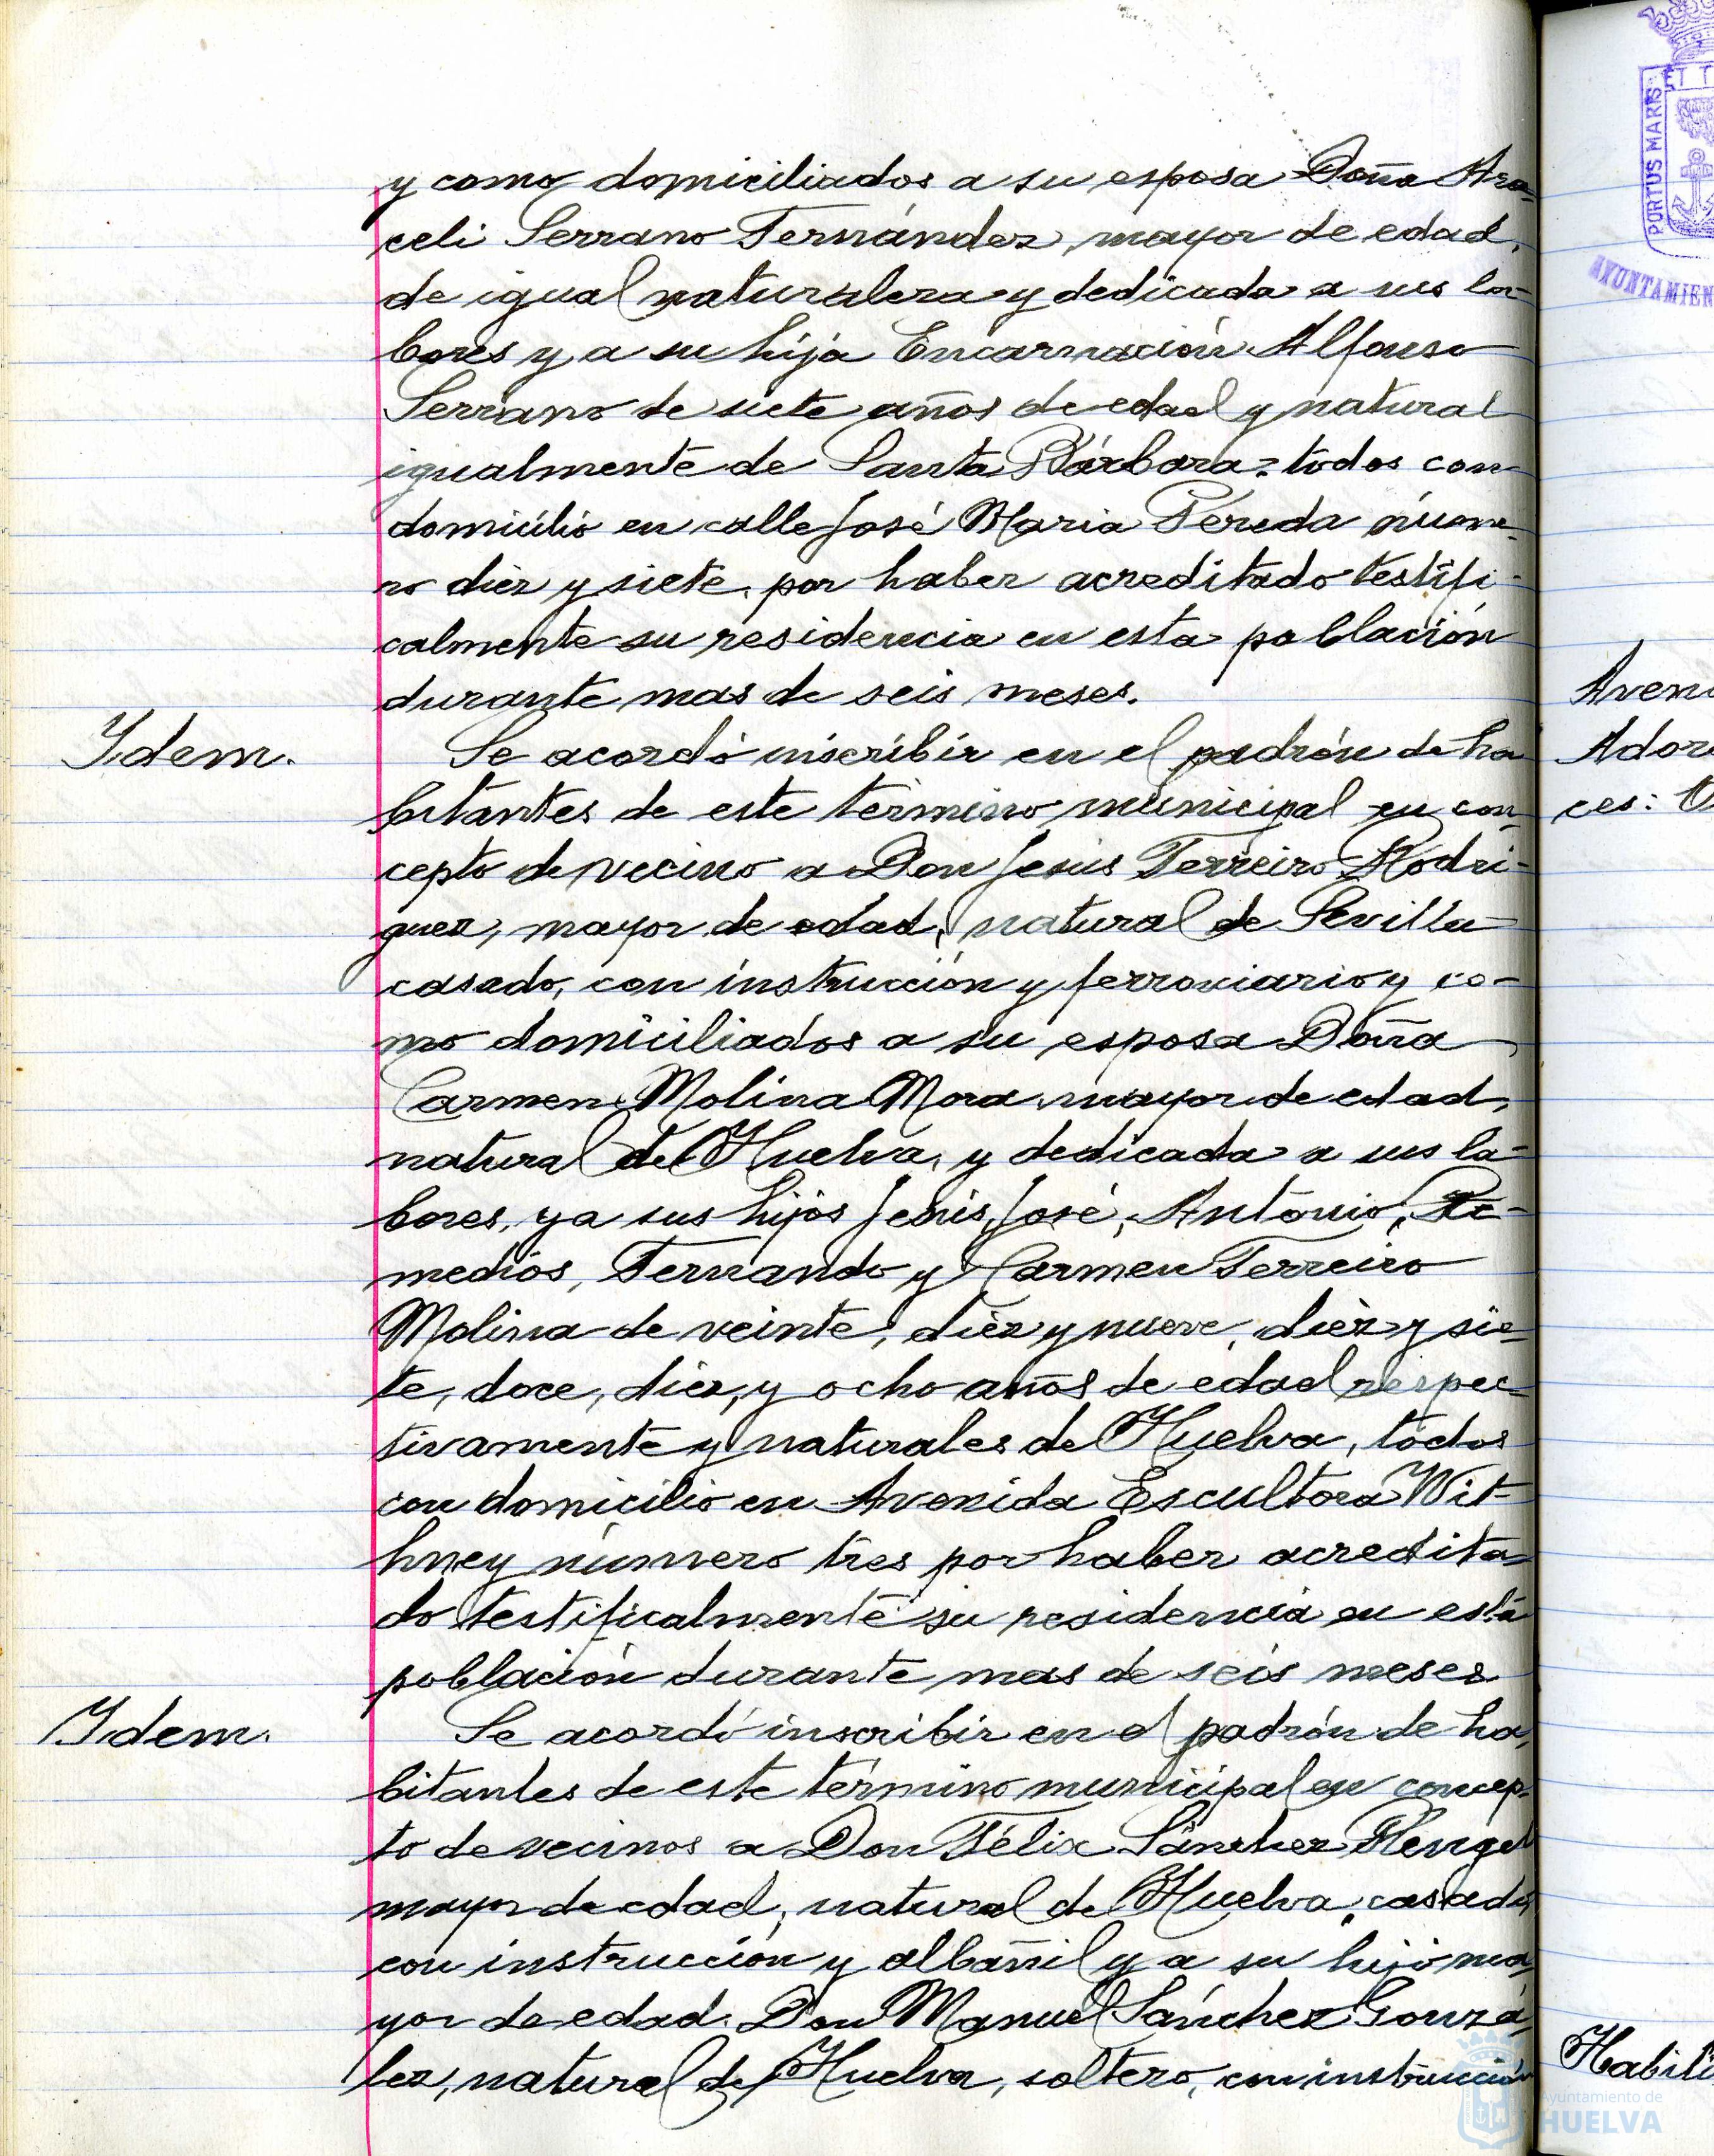 y como domiciliados a su esposa Doña Ara-
celi Serrano Fernández, mayor de edad,
de igual naturaleza y dedicada a sus la-
bores y a su hija Encarnación Alfonso
Serrano de siete años de edad y natural
igualmente de Santa Bárbara, todos con
domicilio en calle José Maria Pereda núme-
ro diez y siete, por haber acreditado testifi-
calmente su residencia en esta población
durante mas de seis meses.
Idem.
Se acordó inscribir en el padrón de ha
bitantes de este término municipal en con-
cepto de vecino a Don Jesús Ferreiro Rodri-
guez, mayor de edad, natural de Sevilla
casado, con instrucción y ferroviario y co-
mo domiciliados a su esposa Doña
Carmen Molina Mora mayor de edad,
natural de Huelva, y dedicada a sus la-
bores, y a sus hijos Jesús, José, Antonio, Re-
medios, Fernando y Carmen Ferreiro
Molina de veinte, diez y nueve, diez y sie-
te, doce, diez, y ocho años de edad respec-
tivamente y naturales de Huelva, todos
con domicilio en Avenida Escultora Wit-
hney número tres por haber acredita-
do testificalmente su residencia en esta
población durante mas de seis meses
Idem.
Se acordó inscribir en el padrón de ha-
bitantes de este término municipal en concep-
to de vecinos a Don Félix Sánchez Rengel
mayor de edad, natural de Huelva, casado,
con instrucción y albañil y a su hijo ma-
yor de edad Don Manuel Sánchez Gonzá-
lez, natural de Huelva, soltero, con instrucción
PORTUS MARIS ET T
AYUNTAMIEN
Aveni
Ador
ces:
Habili
Ayuntamiento de
HUELVA